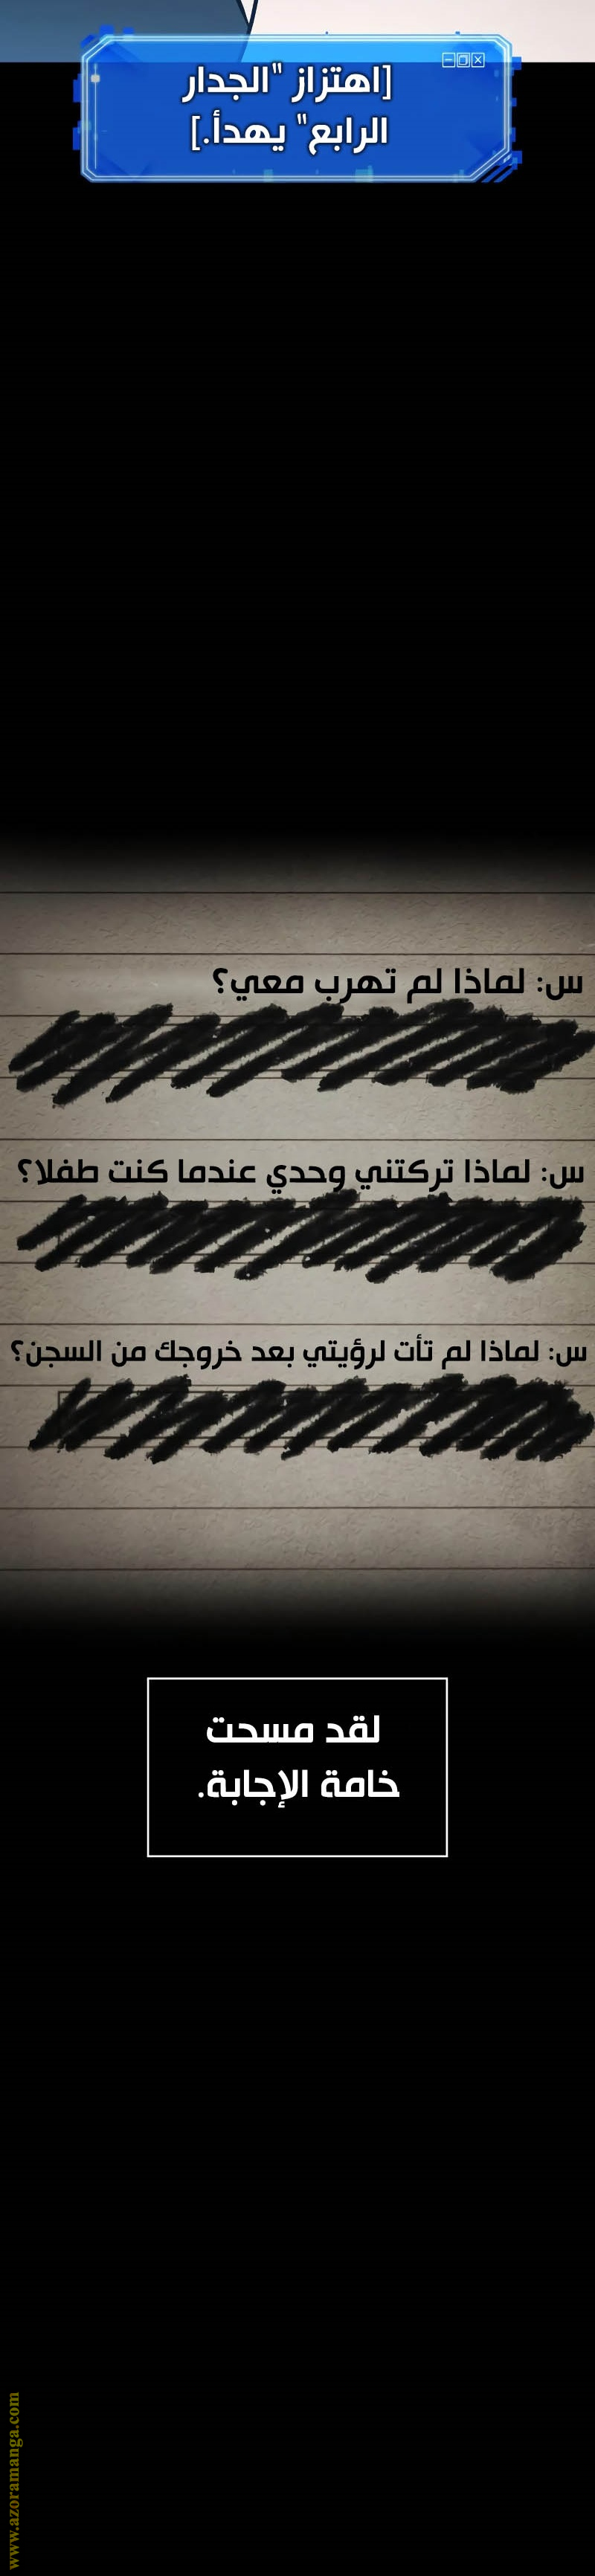 [اهتزاز "الجدار
الرابع" يهدأ.]
س: لماذا لم تهرب معي؟
س: لماذا تركتني وحدي عندما كنت طفلا؟
س: لماذا لم تأت لرؤيتي بعد خروجك من السجن؟
لقد مسحت
خامة الإجابة.
www.azoramanga.com